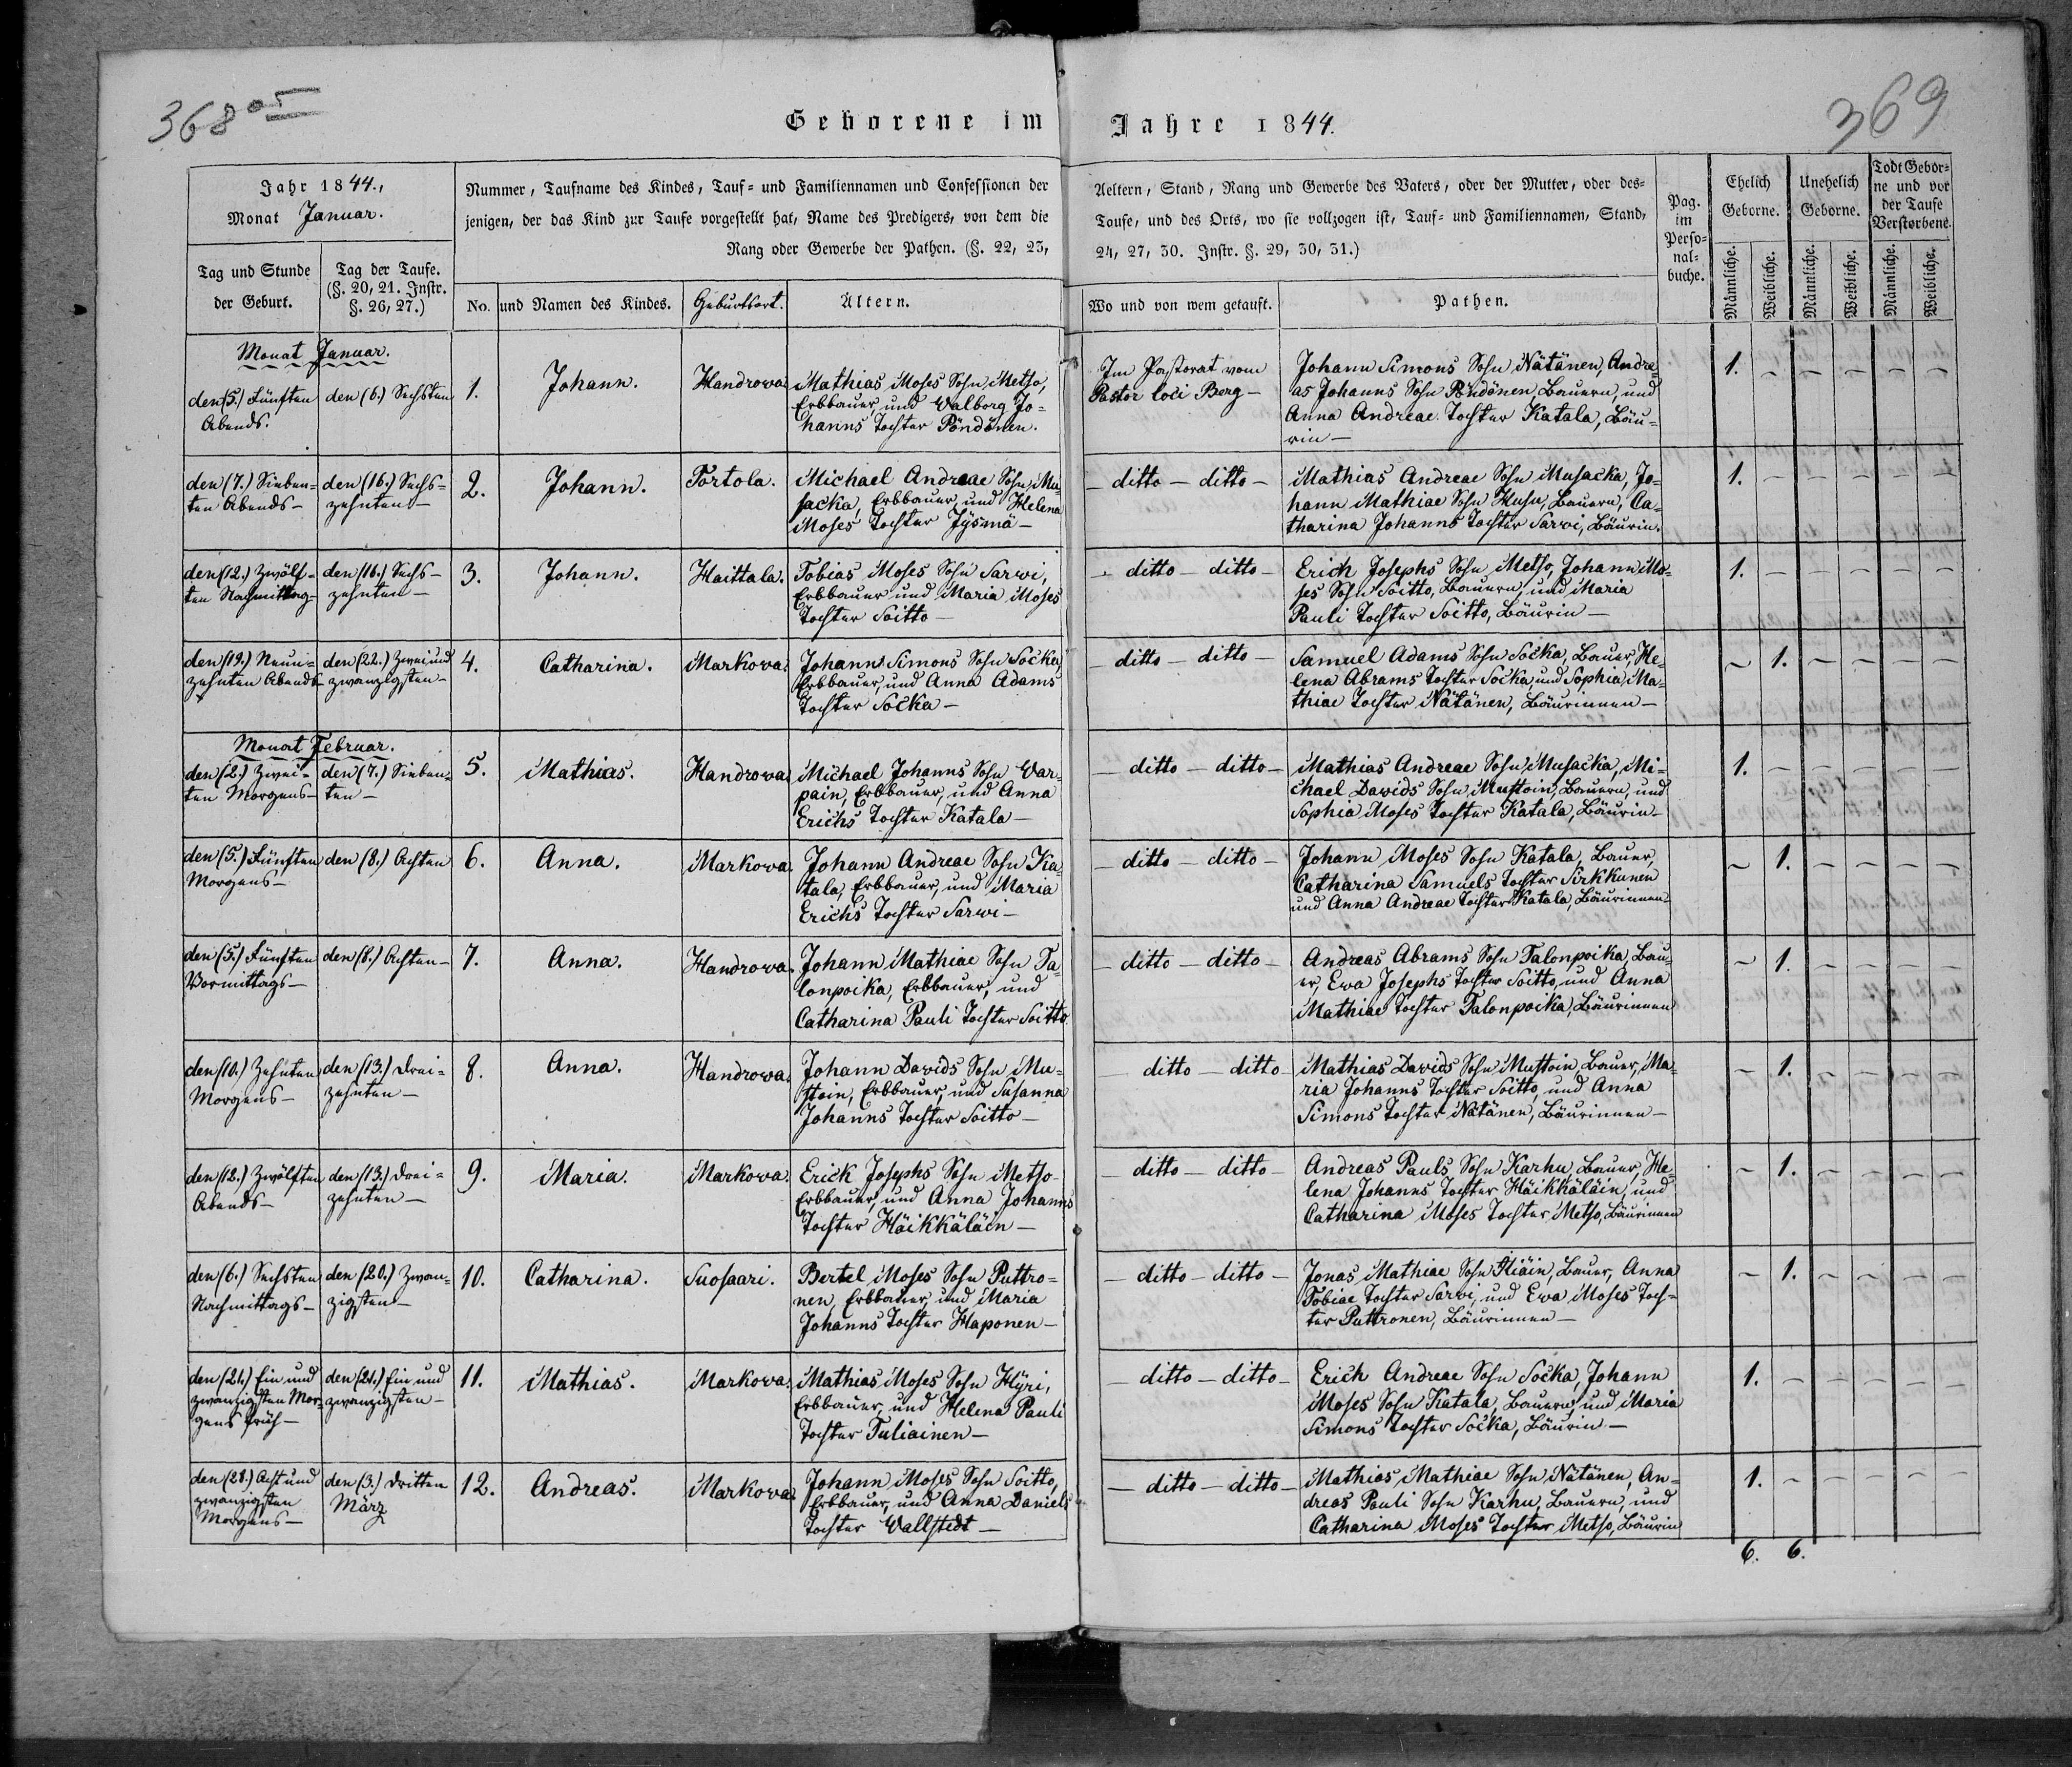 368 05
369
Geborene im Jahre 1844.
Jahr 1844.,
Monat Januar.
Tag und Stunde
der Geburt.
Tag der Taufe.
(§. 20, 21. Instr.
§. 26, 27.)
Nummer, Taufname des Kindes, Tauf- und Familiennamen und Confessionen der
jenigen, der das Kind zur Taufe vorgestellt hat, Name des Predigers, von dem die
Rang oder Gewerbe der Pathen. (§. 22, 23,
No. und Namen des Kindes.
Geburtsort.
Ältern.
Aeltern, Stand, Rang und Gewerbe des Vaters, oder der Mutter, oder des-
Taufe, und des Orts, wo sie vollzogen ist, Tauf- und Familiennamen, Stand,
24, 27, 30. Instr. §. 29, 30, 31.)
Wo und von wem getauft.
Pathen.
Pag.
im
Perso-
nal-
buche.
Ehelich
Geborne.
Unehelich
Geborne.
Todt Gebor-
ne und vor
der Taufe
Verstorbene.
Männliche.
Weibliche.
Männliche.
Weibliche.
Männliche.
Weibliche.
Monat Januar.
den (5.) Fünften
Abends.
den (6.) Sechsten
1.
Johann.
Handrowa.
Mathias Moses Sohn Metso,
Erbbauer, und Walborg Jo-
hanns Tochter Pöndönen.
Im Pastorat vom
Pastor loci Berg –
Johann Simons Sohn Nätänen, Andre-
as Johanns Sohn Pöndönen, Bauern, und
Anna Andreae Tochter Katala, Bäu-
rin –
1. – – – – –
den (7.) Sieben-
ten Abends –
den (16.) Sechs-
zehnten –
2.
Johann.
Tortola.
Michael Andreae Sohn Mu-
sacka, Erbbauer, und Helena
Moses Tochter Jysmä –
– ditto – ditto –
Mathias Andreae Sohn Musacka, Jo-
hann Mathiae Sohn Husu, Bauern, Ca-
tharina Johanns Tochter Sarwi, Bäurin.
1. – – – – –
den (12.) Zwölf-
ten Nachmittag –
den (16.) Sechs-
zehnten –
3.
Johann.
Haittala.
Tobias Moses Sohn Sarwi,
Erbbauer und Maria Moses
Tochter Soitto –
– ditto – ditto –
Erich Josephs Sohn Metso, Johann Mo-
ses Sohn Soitto, Bauern, und Maria
Pauli Tochter Soitto, Bäurin –
1. – – – – –
den (19.) Neun-
zehnten Abends –
den (22.) Zwei und
zwanzigsten –
4.
Catharina.
Markowa.
Johann Simons Sohn Socka,
Erbbauer, und Anna Adams
Tochter Socka –
– ditto – ditto –
Samuel Adams Sohn Socka, Bauer, He-
lena Abrams Tochter Socka, und Sophia Ma-
thiae Tochter Nätänen, Bäurinnen –
– 1. – – – –
Monat Februar.
den (2.) Zwei-
ten Morgens –
den (7.) Sieben-
ten –
5.
Mathias.
Handrowa.
Michael Johanns Sohn War-
pain, Erbbauer, und Anna
Erichs Tochter Katala –
– ditto – ditto –
Mathias Andreae Sohn Musacka, Mi-
chael Davids Sohn Mustoin, Bauern, und
Sophia Moses Tochter Katala, Bäurin –
1. – – – – –
den (5.) Fünften
Morgens –
den (8.) Achten
6.
Anna.
Markowa.
Johann Andreae Sohn Ka-
tala, Erbbauer, und Maria
Erichs Tochter Sarwi –
– ditto – ditto –
Johann Moses Sohn Katala, Bauer,
Catharina Samuels Tochter Sirkkunen
und Anna Andreae Tochter Katala, Bäurinnen
– 1. – – – –
den (5.) Fünften
Vormittags –
den (8.) Achten –
7.
Anna.
Handrowa.
Johann Mathiae Sohn Ta-
lonpoika, Erbbauer, und
Catharina Pauli Tochter Soitto
– ditto – ditto –
Andreas Abrams Sohn Talonpoika, Bau-
er, Ewa Josephs Tochter Soitto, und Anna
Mathiae Tochter Talonpoika, Bäurinnen
– 1. – – – –
den (10.) Zehnten
Morgens –
den (13.) Drei-
zehnten –
8.
Anna.
Handrowa.
Johann Davids Sohn Mu-
stoin, Erbbauer, und Susanna
Johanns Tochter Soitto –
– ditto – ditto –
Mathias Davids Sohn Mustoin, Bauer, Ma-
ria Johanns Tochter Soitto, und Anna
Simons Tochter Nätänen, Bäurinnen –
– 1. – – – –
den (12.) Zwölften
Abends –
den (13.) Drei-
zehnten –
9.
Maria.
Markowa.
Erick Josephs Sohn Metso
Erbbauer, und Anna Johanns
Tochter Häikkäläin –
– ditto – ditto –
Andreas Pauls Sohn Karhu, Bauer, He-
lena Johanns Tochter Häikkäläin, und
Catharina Moses Tochter Metso, Bäurinnen
– 1. – – – –
den (6.) Sechsten
Nachmittags –
den (20.) Zwan-
zigsten –
10.
Catharina.
Suosaari.
Bertel Moses Sohn Puttro-
nen, Erbbauer, und Maria
Johanns Tochter Haponen –
– ditto – ditto –
Jonas Mathiae Sohn Hiäin, Bauer, Anna
Tobiae Tochter Sarwi, und Ewa Moses Toch-
ter Puttronen, Bäurinnen –
– 1. – – – –
den (21.) Ein und
zwanzigsten Mor-
gens früh –
den (21.) Ein und
zwanzigsten –
11.
Mathias.
Markowa.
Mathias Moses Sohn Hÿri,
Erbbauer, und Helena Pauli
Tochter Tuliainen –
– ditto – ditto –
Erich Andreae Sohn Socka, Johann
Moses Sohn Katala, Bauern, und Maria
Simons Tochter Socka, Bäurin –
1. – – – – –
den (28.) Acht und
zwanzigsten
Morgens –
den (3.) Dritten
März
12.
Andreas.
Markowa.
Johann Moses Sohn Soitto,
Erbbauer, und Anna Daniels
Tochter Wallstedt –
– ditto – ditto –
Mathias Mathiae Sohn Nätänen, An-
dreas Pauli Sohn Karhu, Bauern, und
Catharina Moses Tochter Metso, Bäurin
1. – – – – –
6. 6.